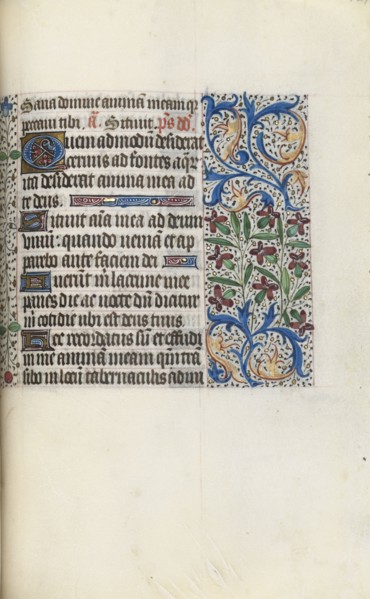 Sana domine animam meam q̄
peccaui tibi. a̅. Sitiuit. p̄s dd̄.
Quemadmodum desiderat
ceruus ad fontes aq̄r
ita desiderat anima mea ad
te deus.
Sitiuit aīa mea ad deum
viuū: quando veniā et ap
parebo ante faciem dei
Fuerūt m̄ lacrime mee
panes die ac nocte dū dicitur
m̄ cotidie ubi est deus tuus.
Hec recordatus sū et effudi
in me animā meam qm̄ trā
sibo in locū tabernaculis admi